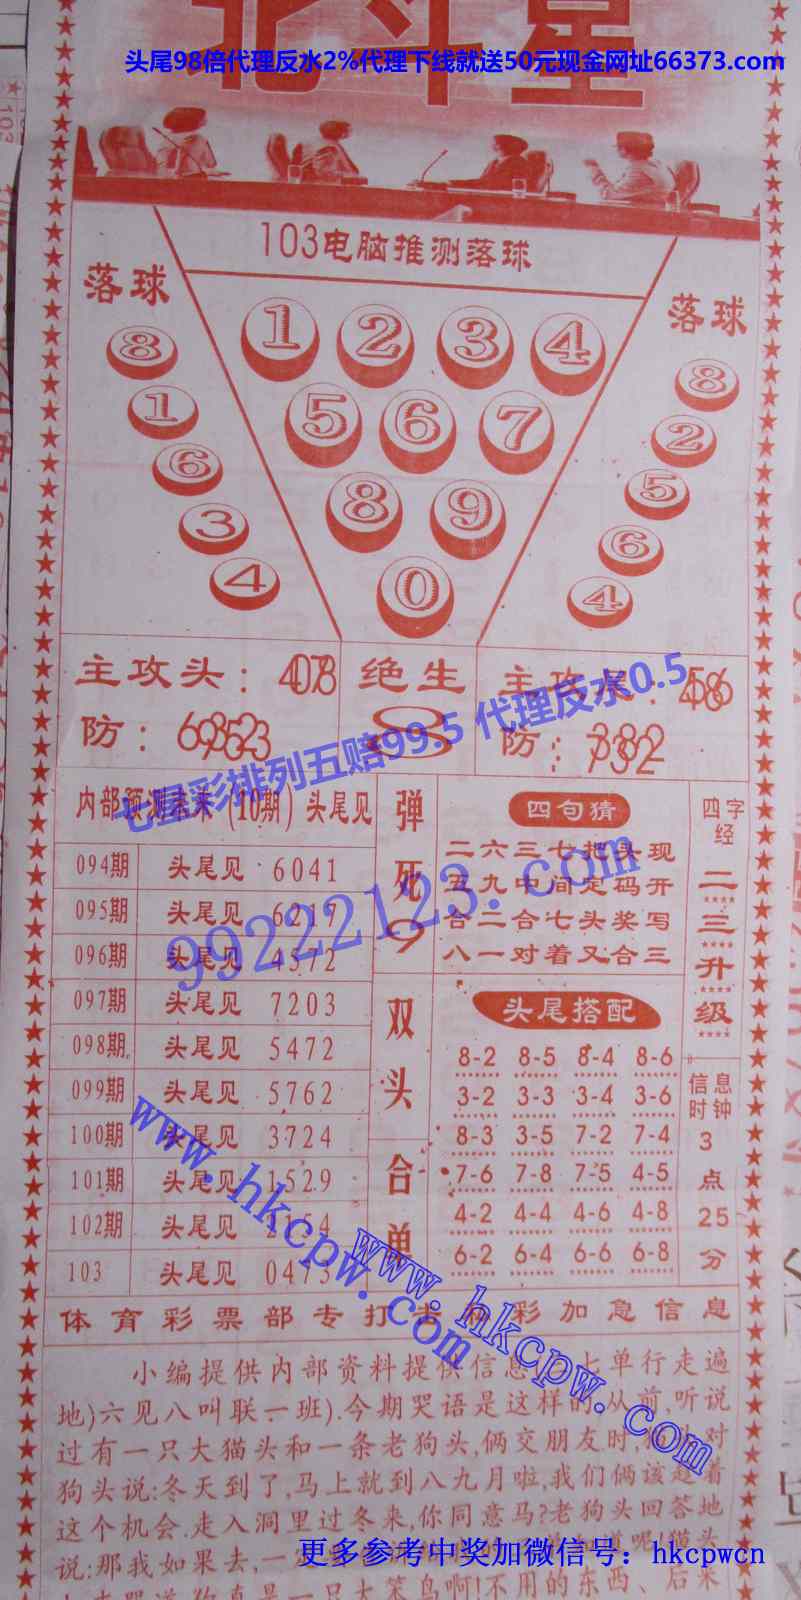 北斗星
头尾98倍代理反水2%代理下线就送50元现金网址66373.com
103电脑推测落球
落球
8
1
6
3
4
1 2 3 4
5 6 7
8 9
0
落球
8
2
5
6
4
主攻头: 4078
防:
绝生
8
主攻尾: 4586
防: 7382
七星彩排列五赔99.5 代理反水0.5
99222123.com
内部预测未来(10期)头尾见
094期 头尾见 6041
095期 头尾见 6217
096期 头尾见 4572
097期 头尾见 7203
098期 头尾见 5472
099期 头尾见 5762
100期 头尾见 3724
101期 头尾见 1529
102期 头尾见 2154
103 头尾见 0473
弹死9
双头
合单
四句猜
二六三七把头现
五九中间定码开
合二合七头奖写
八一对着又合三
头尾搭配
8-2 8-5 8-4 8-6
3-2 3-3 3-4 3-6
8-3 3-5 7-2 7-4
7-6 7-8 7-5 4-5
4-2 4-4 4-6 4-8
6-2 6-4 6-6 6-8
四字经
二三升级
信息时钟
3点25分
www.hkcpw.com
www.hkcpw.com
体育彩票部专打 彩加急信息
小编提供内部资料提供信息 七单行走遍
地)六见八叫联一班).今期哭语是这样的,从前,听说
过有一只大猫头和一条老狗头,俩交朋友时 对
狗头说:冬天到了,马上就到八九月啦,我们俩该趁着
这个机会.走入洞里过冬来,你同意马?老狗头回答地
说:那我如果去,一 猫头
狗真是一只大笨鸟啊!不用的东西、后来
更多参考中奖加微信号: hkcpwcn